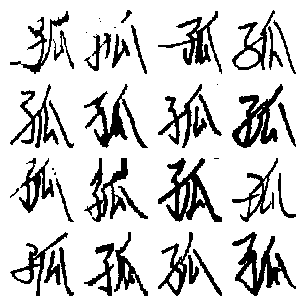 孤孤孤孤
孤孤孤孤
孤孤孤孤
孤孤孤孤